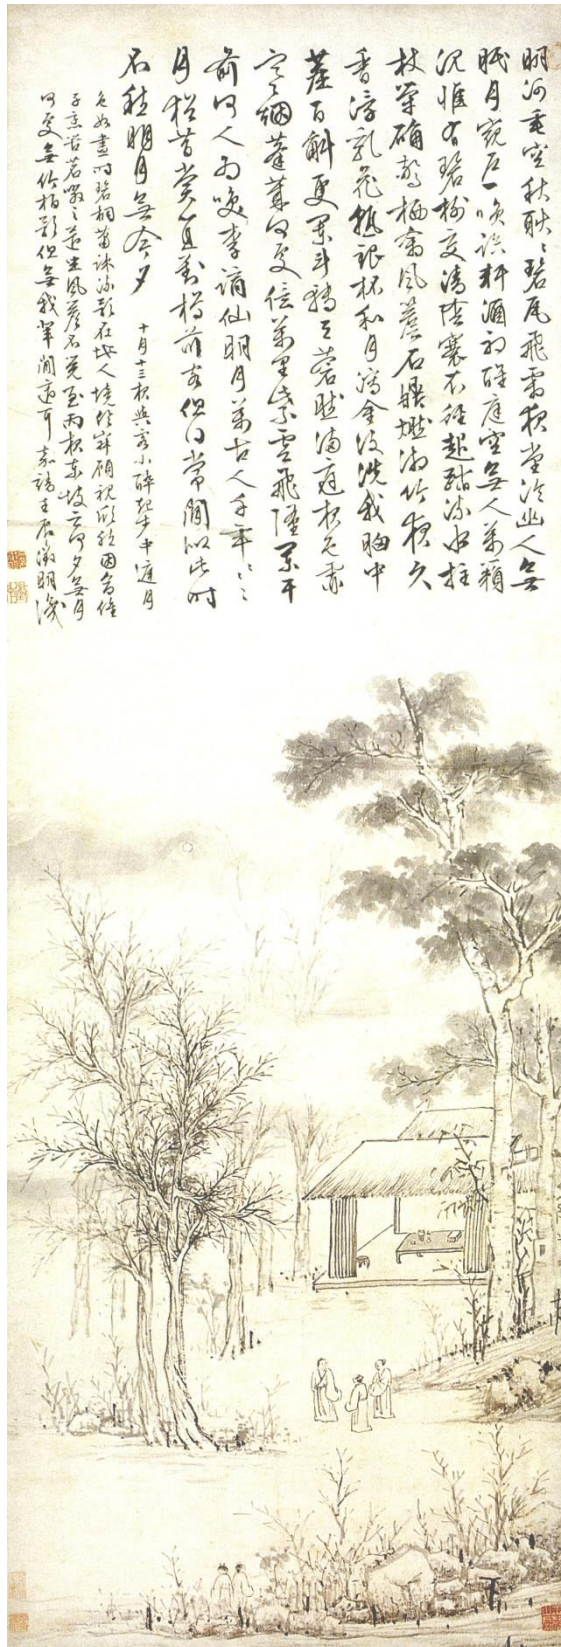 明河垂空秋耿〻碧瓦飛霜夜堂冷幽人無
眠月窺戶一笑臨軒酒初醒庭空無人萬籟
沉惟有碧樹交清陰褰衣徑起踏流水拄
杖犖确驚栖禽風簷石鼎燃湘竹夜久
香浮乳花熟銀杯和月瀉金波洗我胸中
塵百斛更闌斗轉天蒼然滿庭夜色霏
寒烟蓬萊何處億萬里紫雲飛墮闌干
前何人為喚李謫仙明月萬古人千年〻〻〻
月猶昔賞心且對樽前客但得常閒似此時
不愁明月無今夕 十月十三夜與客小醉起步中庭月
色如晝時碧桐蕭疎流影在地人境絕寂顧視欣然因命僮
子烹苦茗啜之還坐風簷不覺至丙夜東坡云何夕無月
何處無竹柏影但無我輩閒適耳 嘉靖壬辰徵明識